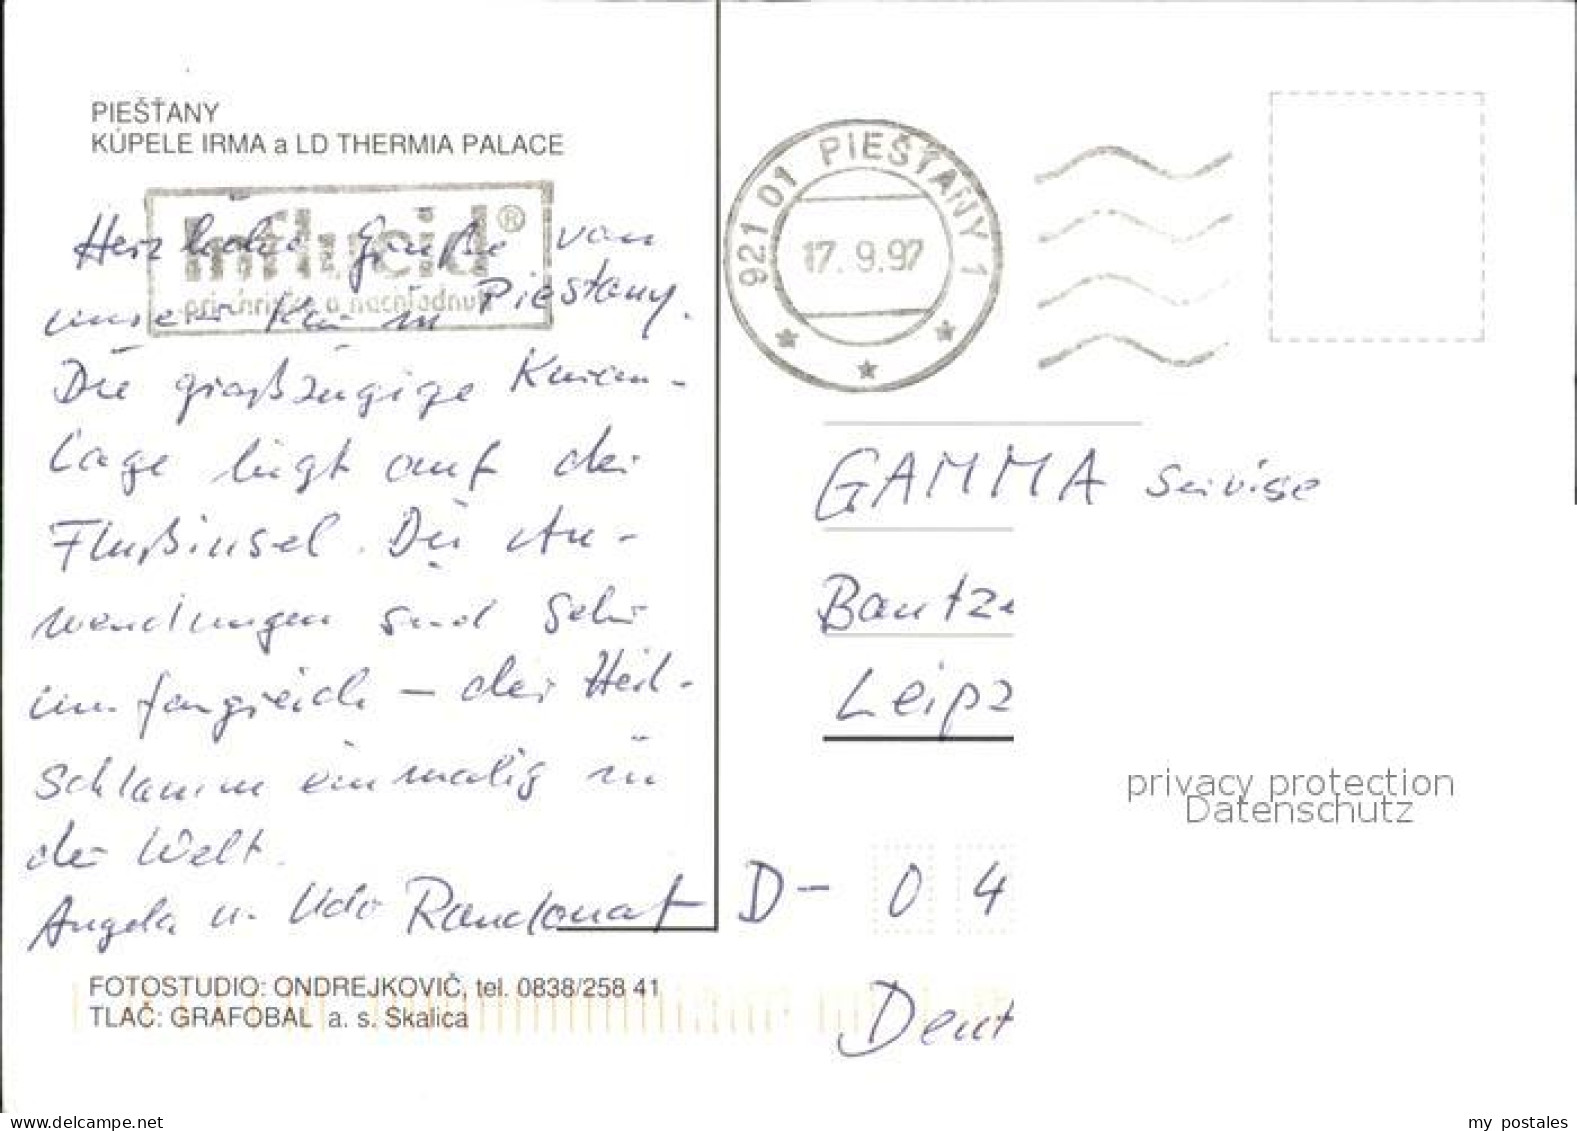 PIEŠŤANY
KÚPELE IRMA a LD THERMIA PALACE
Influcid®
pri chrípke a nachladnutí
Herzliche Grüße von
unserer Kur in Piestany.
Die großzügige Kuran-
lage liegt auf der
Flußinsel. Die An-
wendungen sind sehr
umfangreich – der Heil-
schlamm einmalig in
der Welt.
Angela u. Udo Randonat
FOTOSTUDIO: ONDREJKOVIČ, tel. 0838/258 41
TLAČ: GRAFOBAL a. s. Skalica
921 01 PIEŠŤANY 1
17. 9. 97
GAMMA Servise
Bautze
Leipz
D- 0 4
Deut
privacy protection
Datenschutz
www.delcampe.net
my_postales